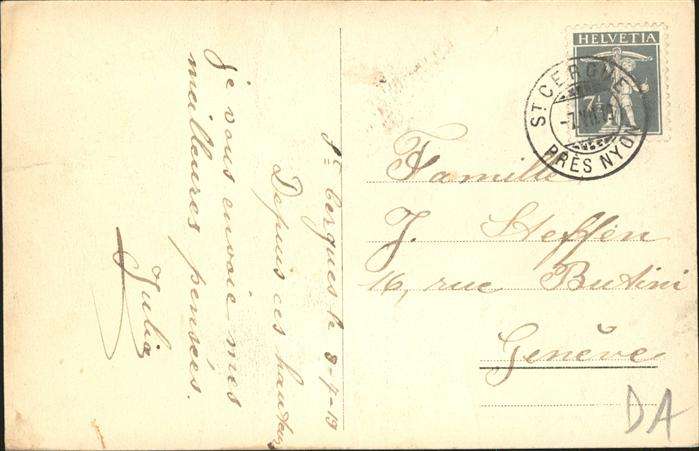 St Cergues le 8-7-19
Depuis ces hauteurs
je vous envoie mes
meilleures pensées.
Julia
HELVETIA
7½
ST CERGUE
PRÈS NYON
Famille
J. Steffen
16, rue Butini
Genève
DA